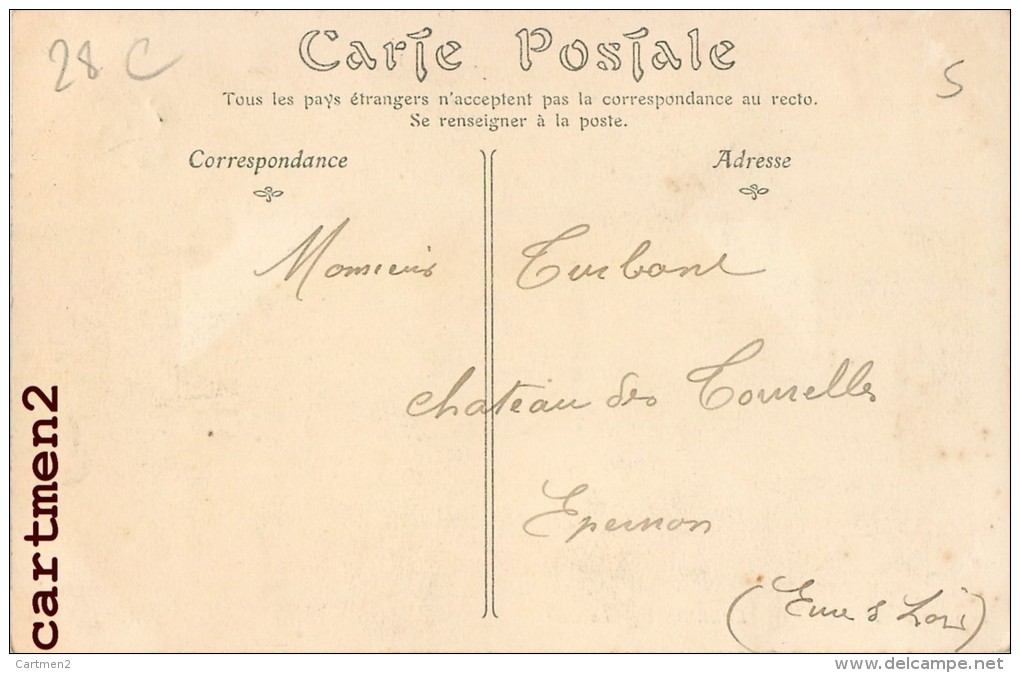 28 C
5
Carte Postale
Tous les pays étrangers n'acceptent pas la correspondance au recto.
Se renseigner à la poste.
Correspondance
Adresse
Monsieur Turbant
chateau des Tourelles
Epernon
(Eure & Loir)
cartmen2
Cartmen2
www.delcampe.net